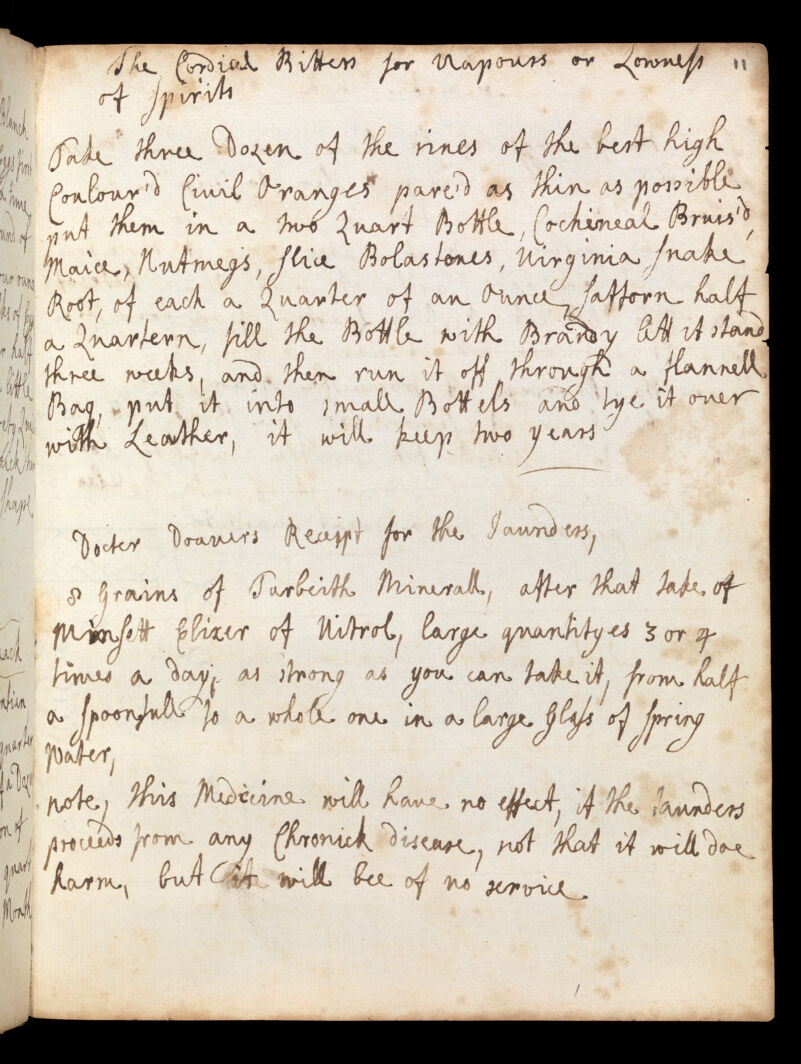 The Cordial Bitters for Vapours or Lowness 11
of Spirits
Take three Dozen of the rines of the best high
Coulour'd Civil Oranges pare'd as thin as possible
put them in a two Quart Bottle, Cocheneal Bruis'd,
Maice, Nutmegs, slice Bolastones, Virginia Snake
Root, of each a Quarter of an Ounce, Safforn half
a Quartern, fill the Bottle with Brandy lett it stand
three weeks, and then run it off through a flannell
Bag, put it into small Bottels and tye it over
with Leather, it will keep two years
Docter Doavers Receipt for the Jaunders,
8 Grains of Turbeith Minerall, after that take of
Minsett Elixer of Vitrol, large quantityes 3 or 4
times a day, as strong as you can take it, from half
a spoonfull to a whole one in a large Glass of spring
Water,
note, this Medicine will have no effect, if the Jaunders
proceeds from any Chronick disease, not that it will doe
harm, but it will bee of no service
Blanch
Eggs first
a time
und of
r half
little
Shape
quarter
on of
quart
Month